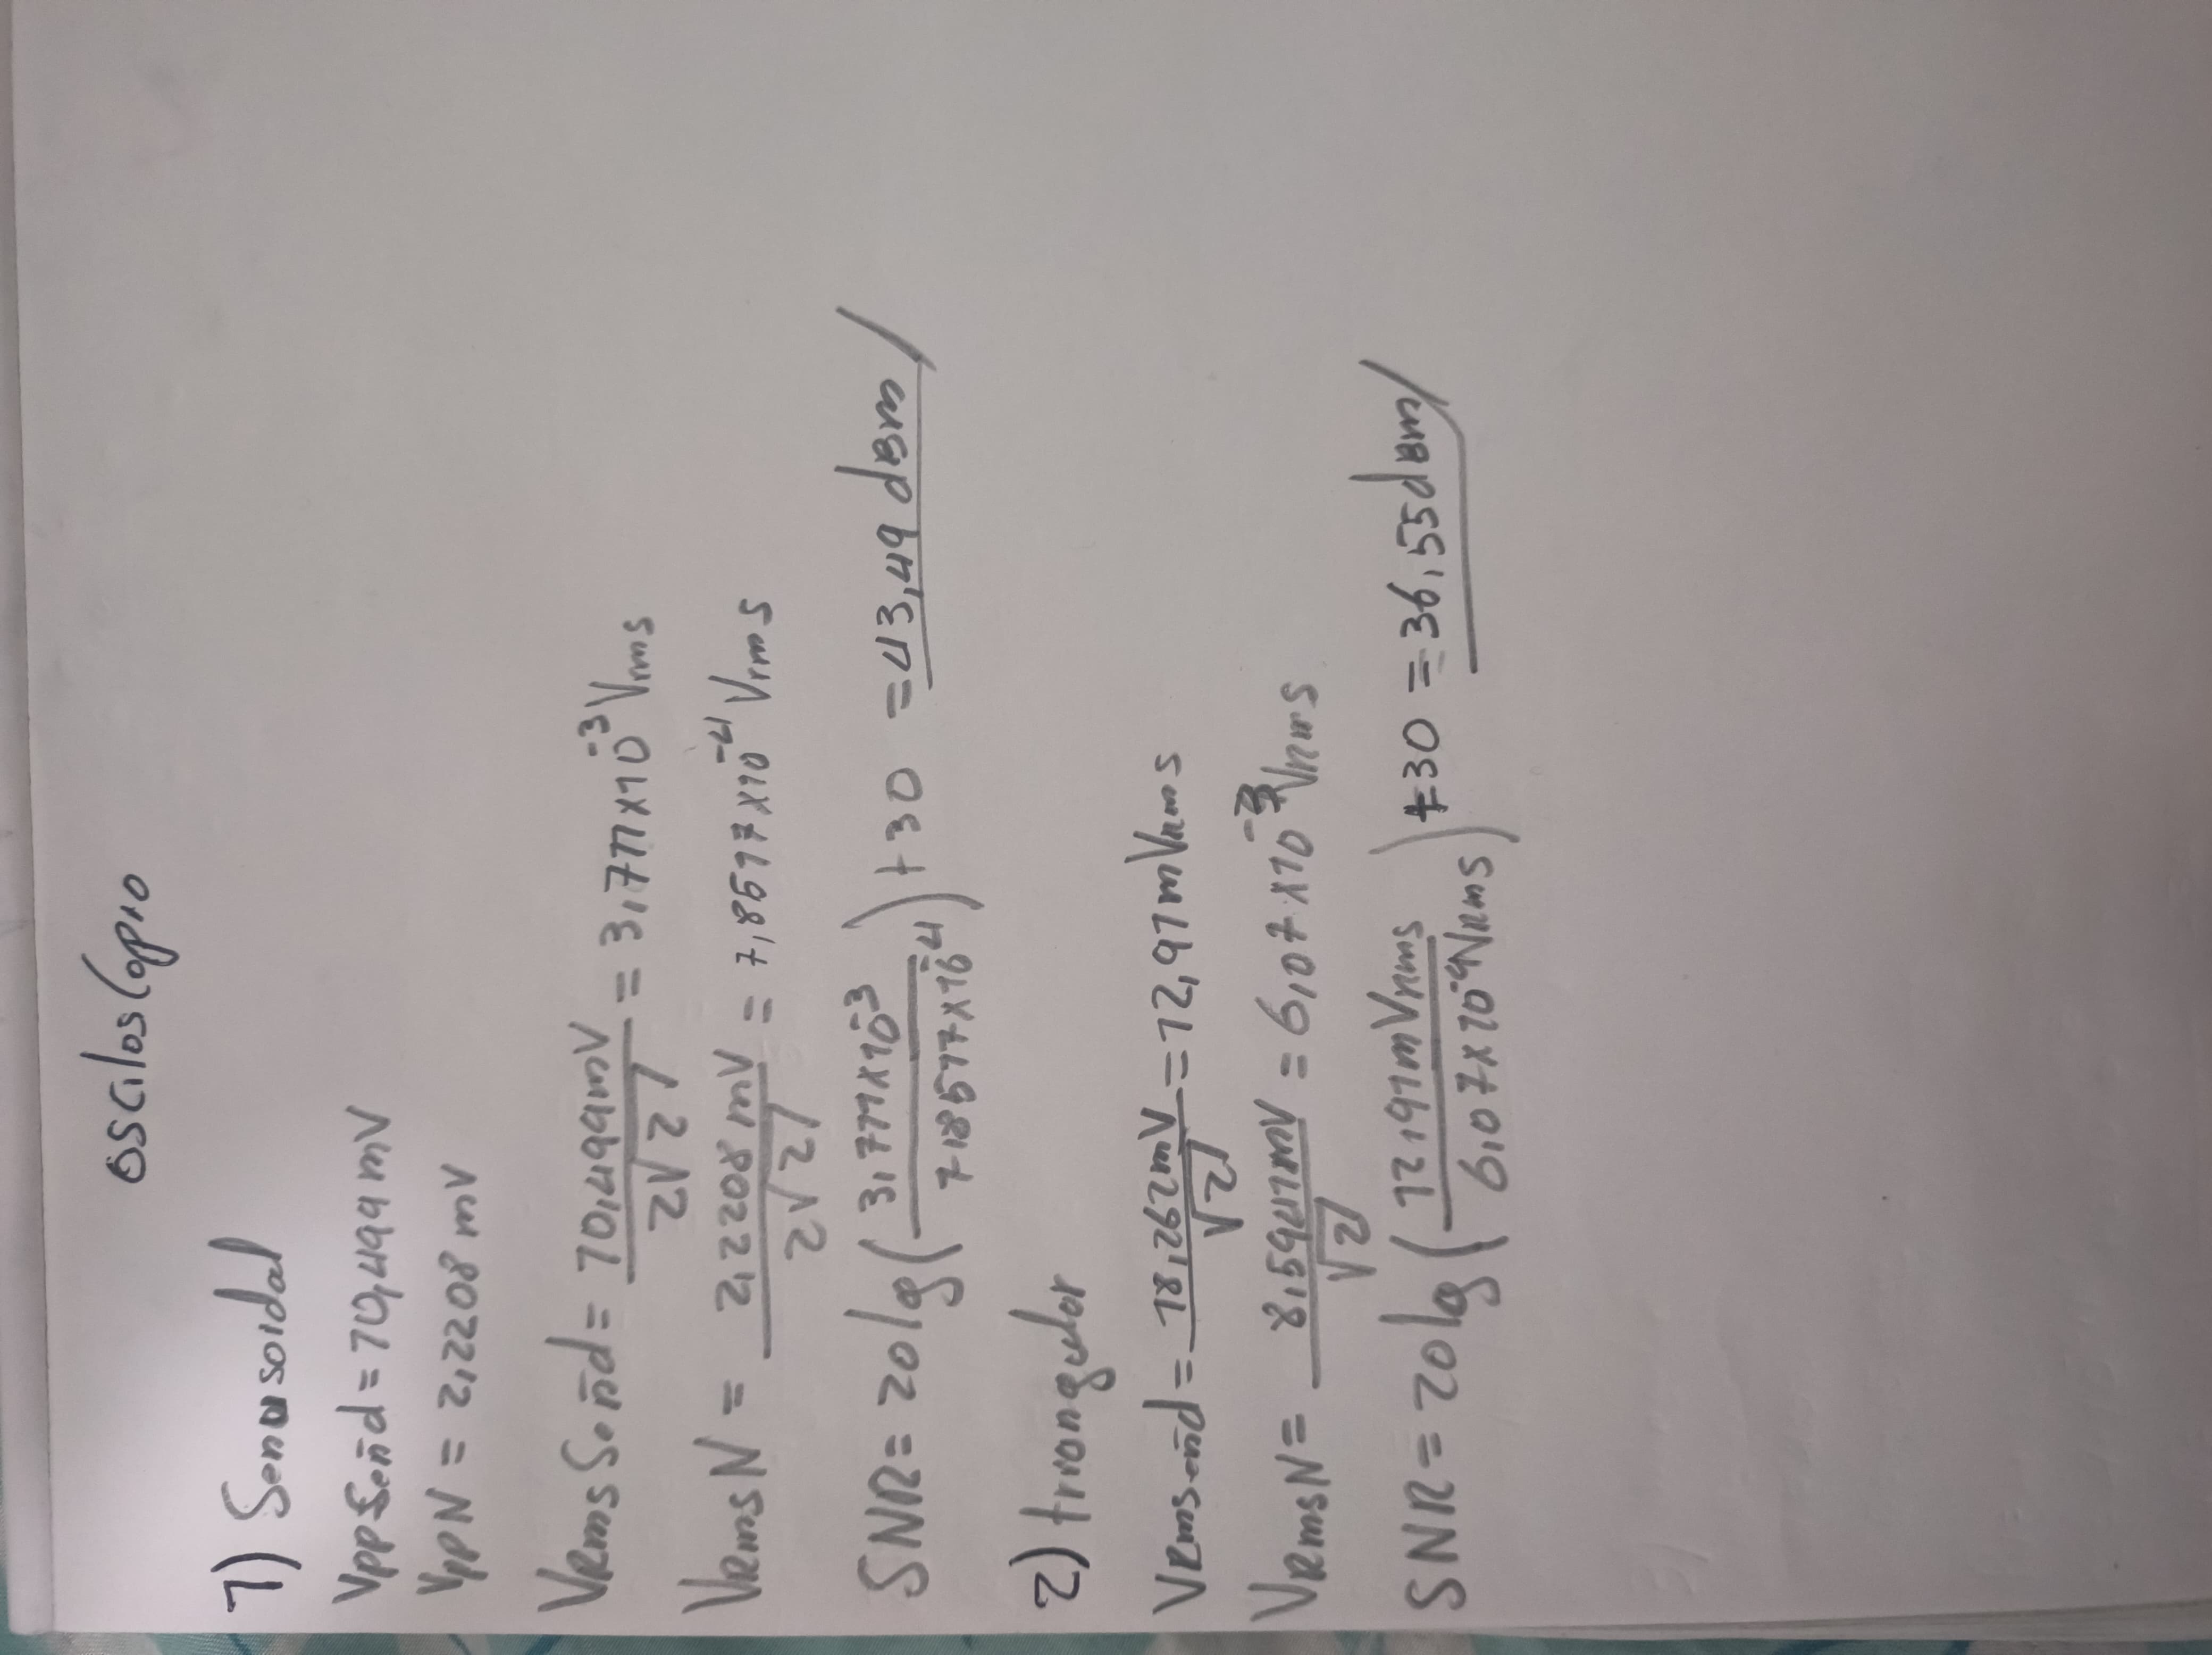 Osciloscopio
1) Senusoidal
Vpp Señal = 10,499 mV
VppN = 2,2208 mV
VRms Señal = 10,499mV / 2√2 = 3,711x10^-3 Vrms
VRmsN = 2,2208 mV / 2√2 = 7,8517x10^-4 Vrms
SNR = 20 log (3,711x10^-3 / 7,8517x10^-4) + 30 = 43,49 dBm
2) triangular
VRmsenal = 18,262mV / √2 = 12,91 mVRms
VRmsN = 8,5947mV / √2 = 6,07x10^-3 VRms
SNR = 20 log (12,91mVrms / 6,07x10^-4 VRms) + 30 = 36,55dBm